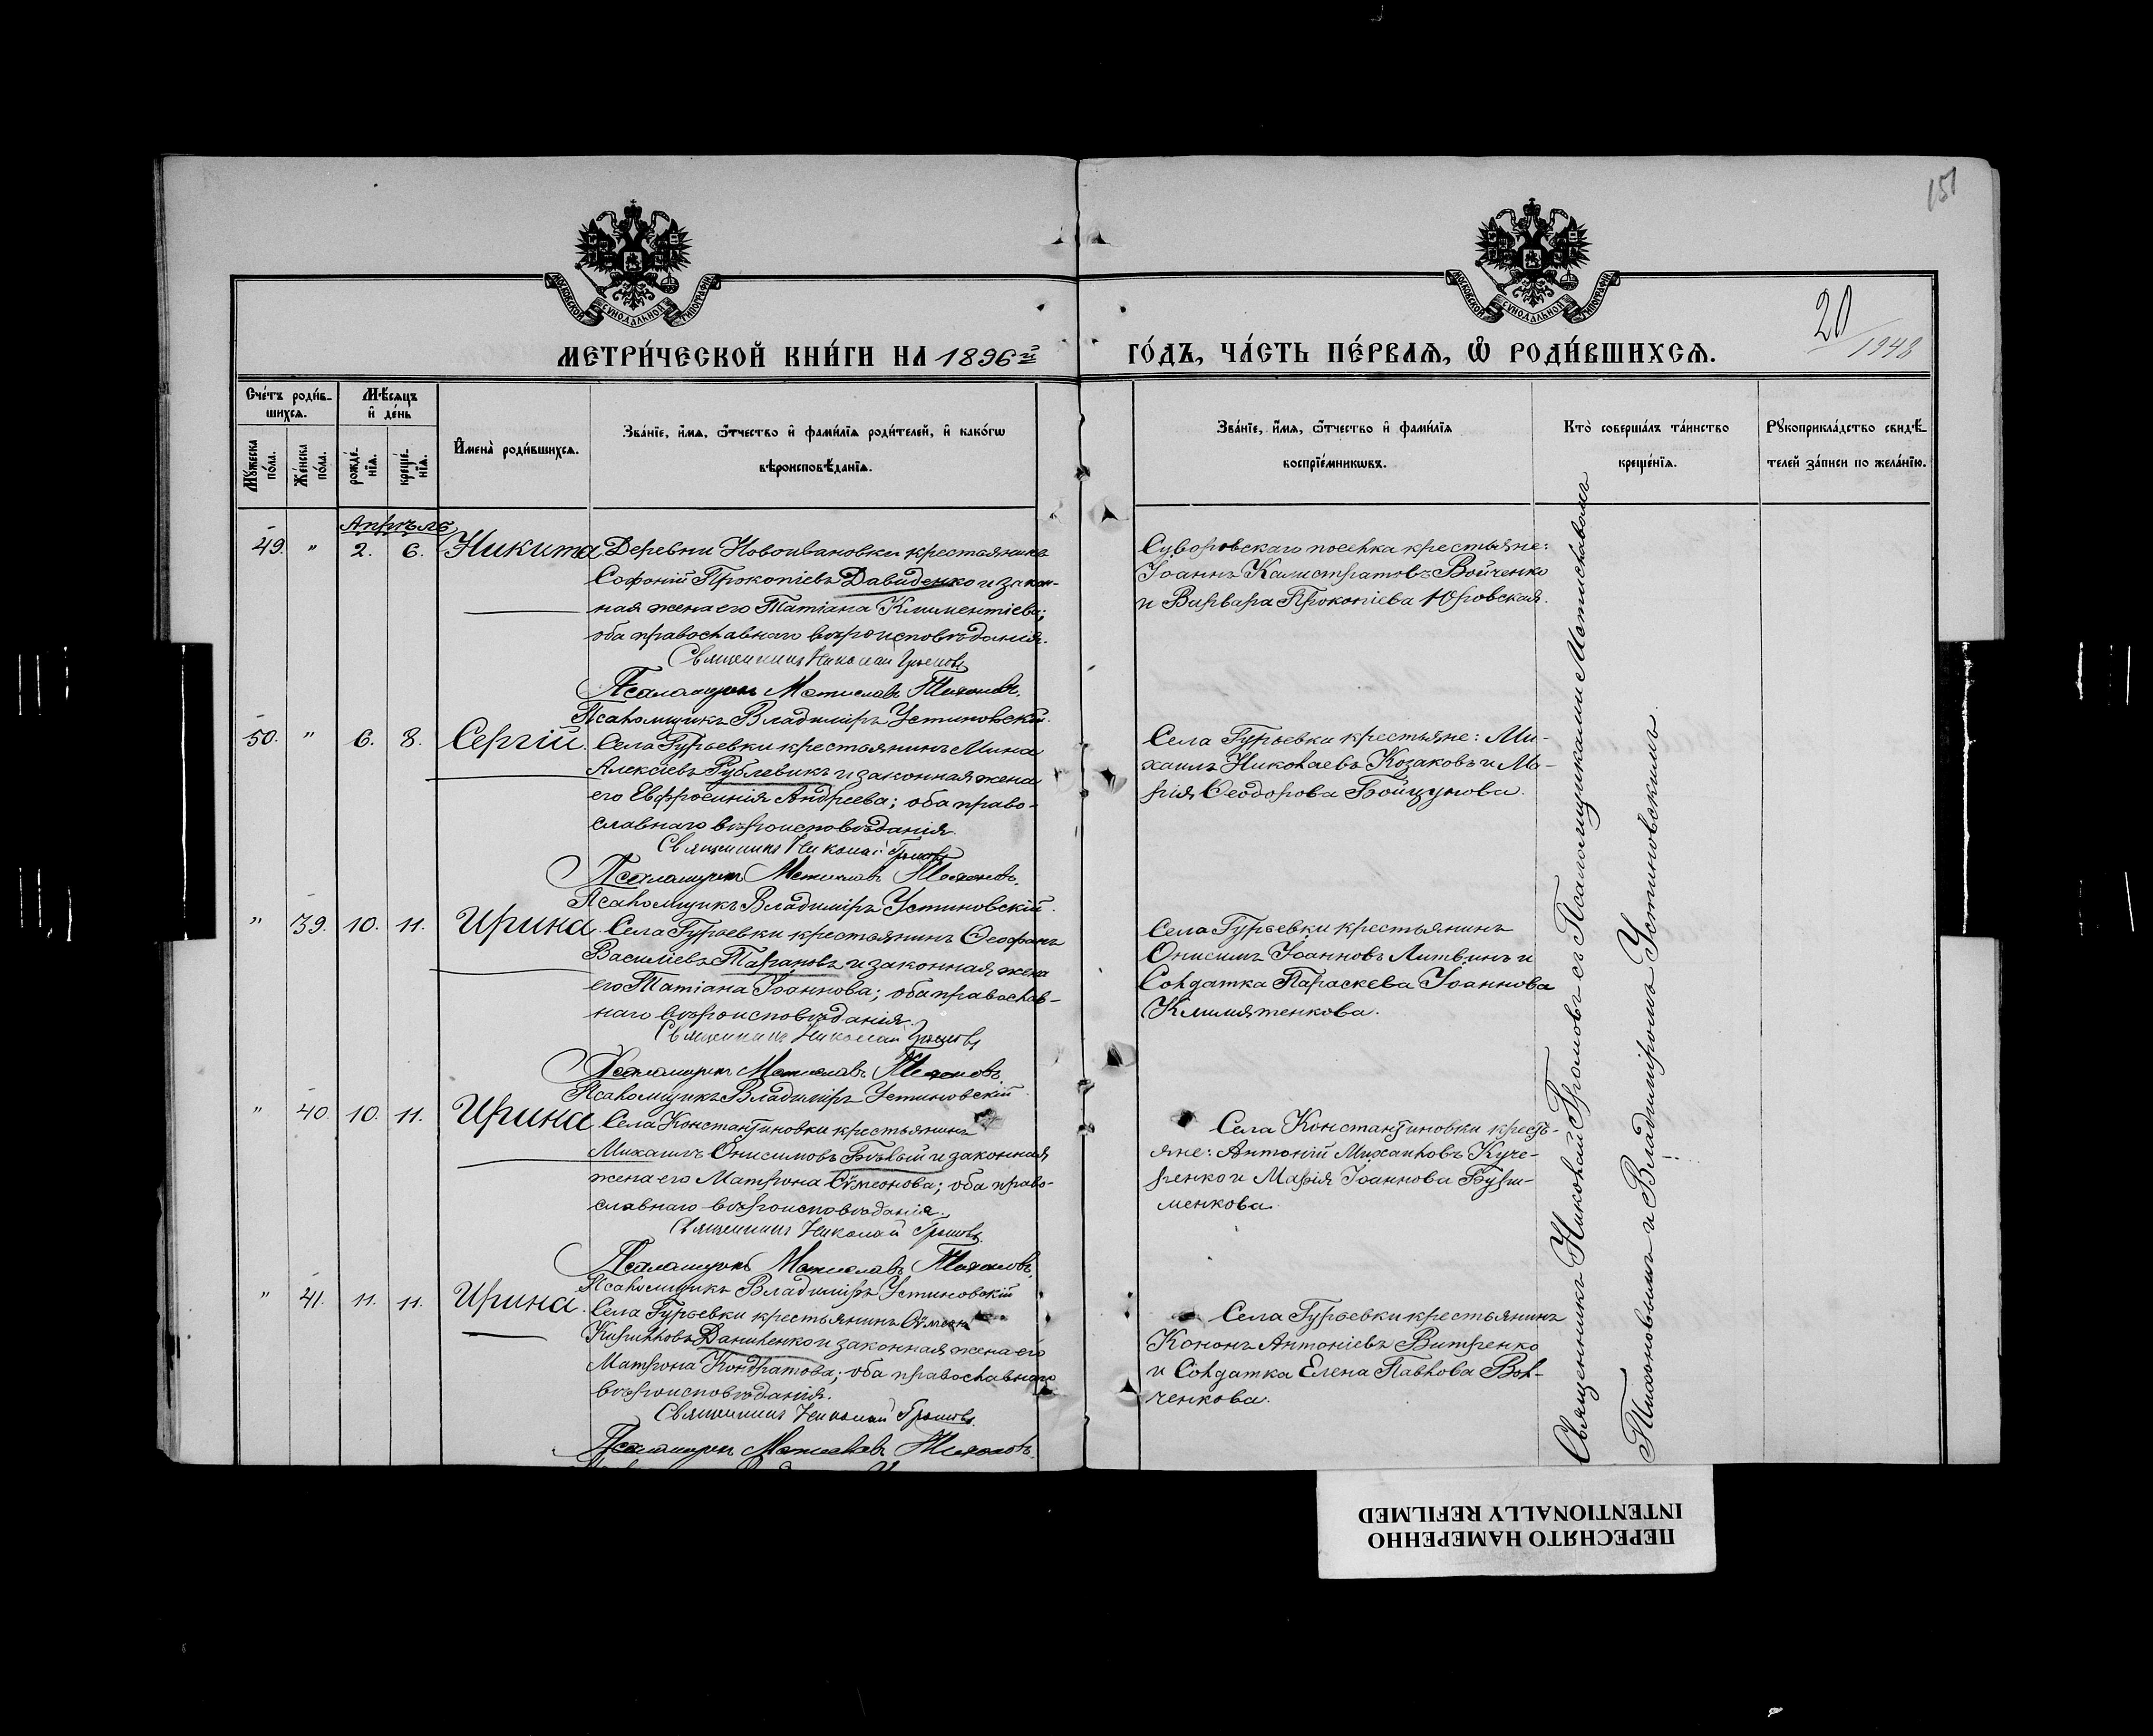 151
МОСКОВСКОЙ СѴНОДАЛЬНОЙ ТИПОГРАФІИ
МОСКОВСКОЙ СѴНОДАЛЬНОЙ ТИПОГРАФІИ
20
1948
МЕТРИ́ЧЕСКОЙ КНИ́ГИ НА 1896й
ГО́ДЪ, ЧА́СТЬ ПЕ́РВАѦ, Ѡ҆ РОДИ́ВШИХСѦ.
Сче́тъ роди́в-
шихсѧ.
Мѣ́сѧцъ
и҆ де́нь
Мꙋ́жеска
по́ла.
Же́нска
по́ла.
рожде́-
нїѧ.
креще́-
нїѧ.
И҆мена̀ роди́вшихсѧ.
Зва́нїе, и҆́мѧ, ѻ҆́тчество и҆ фами́лїѧ роди́телей, и҆ како́гѡ
вѣроисповѣ́данїѧ.
Зва́нїе, и҆́мѧ, ѻ҆́тчество и҆ фами́лїѧ
воспрїе́мникѡвъ.
Кто̀ соверша́лъ та́инство
креще́нїѧ.
Рꙋкоприкла́дство свидѣ́-
телей за́писи по жела́нїю.
Апрѣль
49. " 2. 6. Никита Деревни Новоивановки крестьянинъ
Софоній Прокопіевъ Давиденко и закон-
ная жена его Татіана Климентіева;
оба православнаго вѣроисповѣданія.
Священникъ Николай Громовъ
Псаломщикъ Мстиславъ Тихоновъ.
Псаломщикъ Владиміръ Устиновскій.
Суворовскаго поселка крестьяне:
Іоаннъ Калистратовъ Войченко
и Варвара Прокопіева Юровская.
50. " 6. 8. Сергій. Села Гурьевки крестьянинъ Мина
Алексіевъ Рублевикъ и законная жена
его Евфросинія Андреева; оба право-
славнаго вѣроисповѣданія.
Священникъ Николай Громовъ
Псаломщикъ Мстиславъ Тихоновъ.
Псаломщикъ Владиміръ Устиновскій.
Села Гурьевки крестьяне: Ми-
хаилъ Николаевъ Козаковъ и Ма-
рія Ѳеодорова Бойцунова.
" 39. 10. 11. Ирина. Села Гурьевки крестьянинъ Ѳеофанъ
Василіевъ Тарановъ и законная жена
его Татіана Іоаннова; оба православ-
наго вѣроисповѣданія.
Священникъ Николай Громовъ
Псаломщикъ Мстиславъ Тихоновъ
Псаломщикъ Владиміръ Устиновскій
Села Гурьевки крестьянинъ
Онисимъ Іоанновъ Литвинъ и
Солдатка Параскева Іоаннова
Климятенкова.
" 40. 10. 11. Ирина Села Константиновки крестьянинъ
Михаилъ Онисимовъ Бѣлый и законная
жена его Матрона Сѵмеонова; оба право-
славнаго вѣроисповѣданія.
Священникъ Николай Громовъ.
Псаломщикъ Мстиславъ Тихоновъ.
Псаломщикъ Владиміръ Устиновскій
Села Константиновки кресть-
яне: Антоній Михаиловъ Куче-
ренко и Марія Іоаннова Бури-
менкова
" 41. 11. 11. Ирина. Села Гурьевки крестьянинъ Сѵмеонъ
Кирилловъ Даниленко и законная жена его
Матрона Кондратова; оба православнаго
вѣроисповѣданія.
Священникъ Николай Громовъ.
Псаломщикъ Мстиславъ Тихоновъ
Села Гурьевки крестьянинъ
Кононъ Антоніевъ Витренко
и Солдатка Елена Павлова Вол-
ченкова.
Священникъ Николай Громовъ съ Псаломщиками Мстиславомъ
Тихоновымъ и Владиміромъ Устиновскимъ.
ПЕРЕСНЯТО НАМЕРЕННО
INTENTIONALLY REFILMED